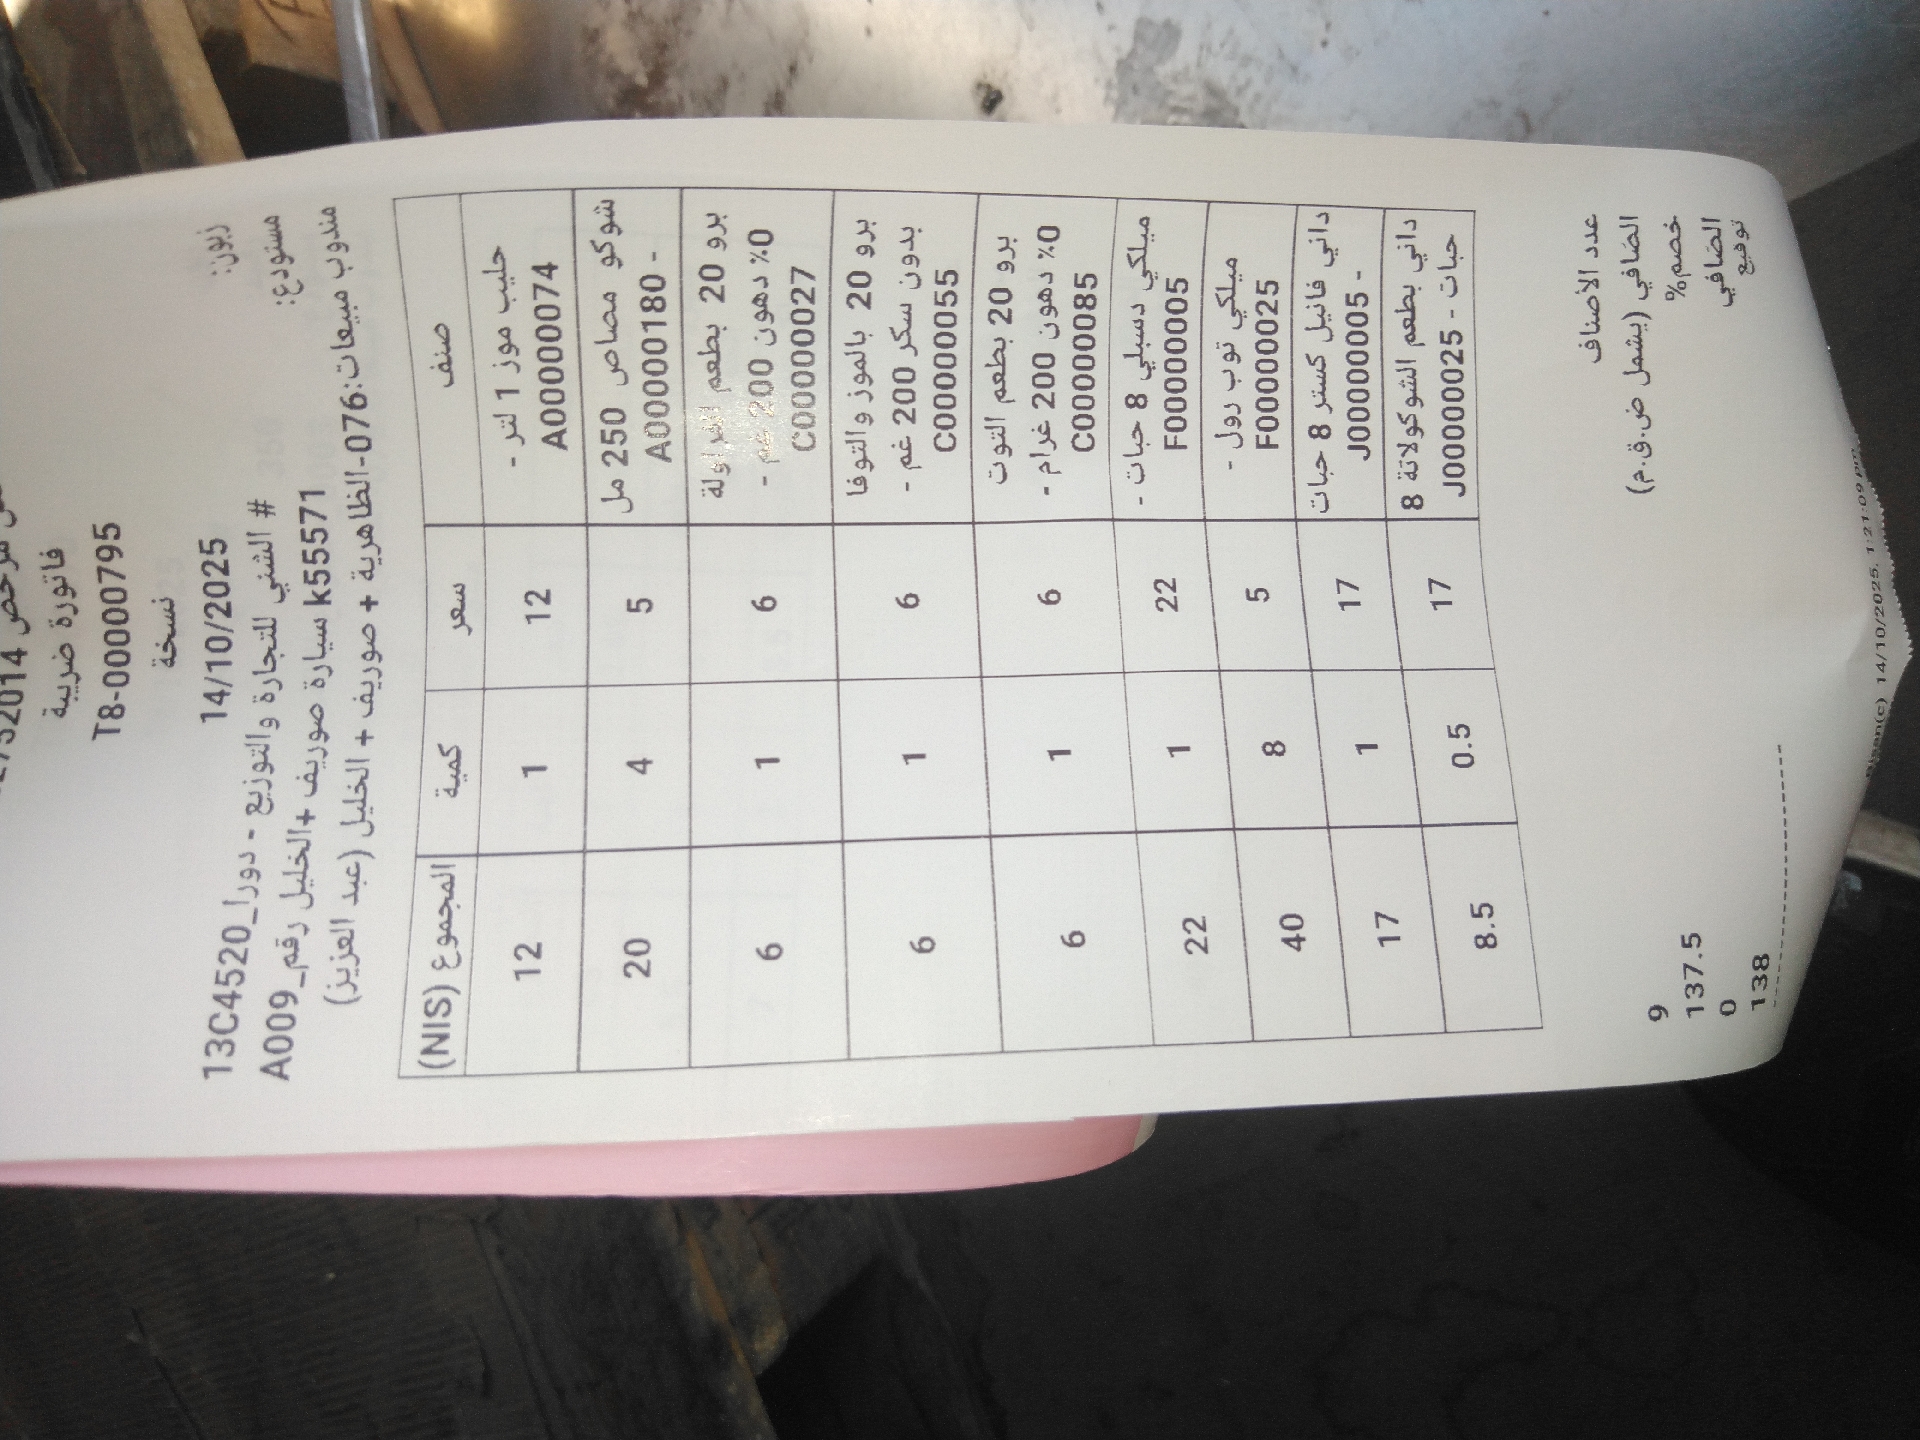 مرخص 2752014
فاتورة ضريبة
T8-00000795
نسخة
14/10/2025
زبون: 13C4520_الشني للتجارة والتوزيع - دورا #
مستودع: A009_سيارة صوريف +الخليل رقم k55571
مندوب مبيعات:076-الظاهرية + صوريف + الخليل (عبد العزيز)
صنف سعر كمية المجموع (NIS)
حليب موز 1 لتر - 12 1 12
A0000074
شوكو مصاص 250 مل 5 4 20
A0000180 -
برو 20 بطعم الفراولة 6 1 6
0% دهون 200 غم -
C0000027
برو 20 بالموز والتوفا 6 1 6
بدون سكر 200 غم -
C0000055
برو 20 بطعم التوت 6 1 6
0% دهون 200 غرام -
C0000085
ميلكي دسبلي 8 حبات - 22 1 22
F0000005
ميلكي توب رول - 5 8 40
F0000025
داني فانيل كستر 8 حبات 17 1 17
J0000005 -
داني بطعم الشوكولاتة 8 17 0.5 8.5
حبات - J0000025
عدد الأصناف 9
الصافي (يشمل ض.ق.م) 137.5
خصم% 0
الصافي 138
توقيع
14/10/2025, 1:21:09 pm